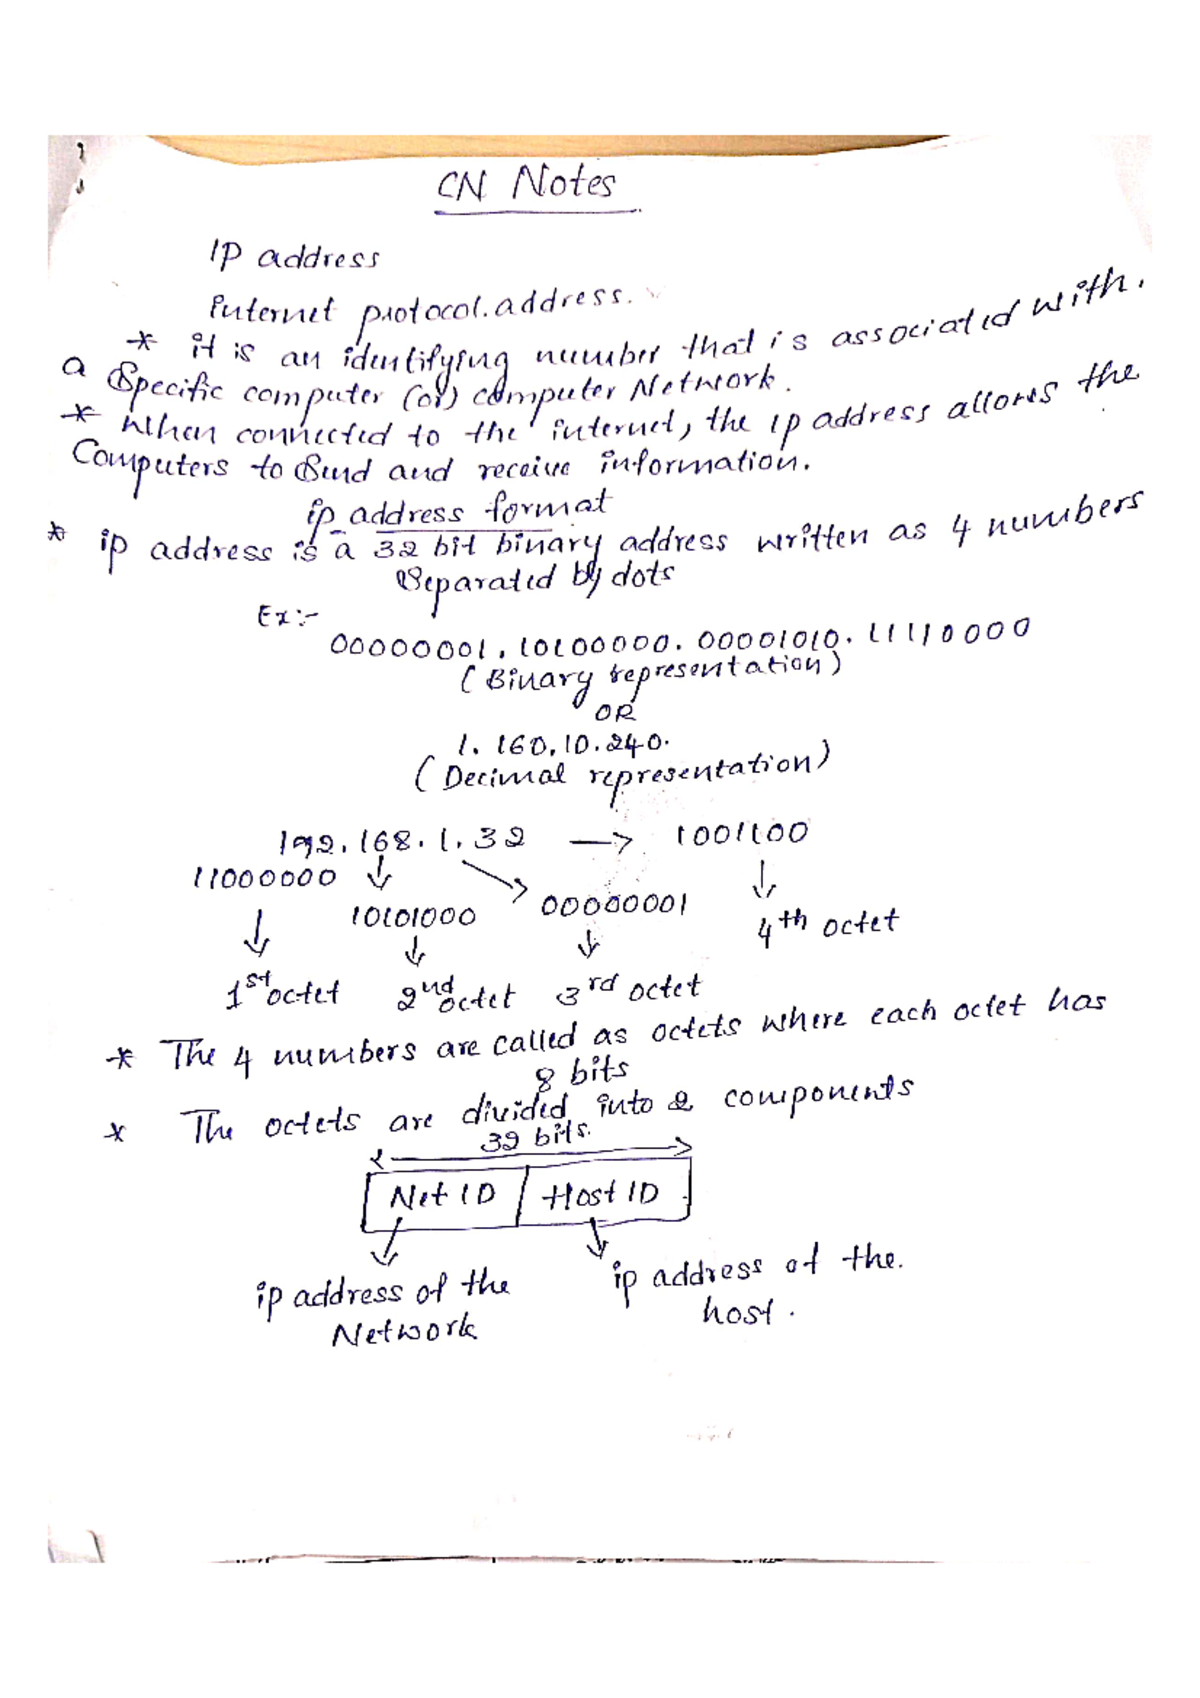 CN Notes
IP address
internet protocol. address.
* it is an identifying number that is associated with.
a Specific computer (or) computer Network.
* When connected to the internet, the ip address allows the
Computers to Send and receive information.
ip address format
* ip address is a 32 bit binary address written as 4 numbers
Separated by dots
Ex:-
00000001.10100000.00001010.11110000
(Binary representation)
OR
1.160.10.240.
(Decimal representation)
192.168.1.32 → 1001100
11000000 ↓
10101000 00000001
4th octet
1st octet 2nd octet 3rd octet
* The 4 numbers are called as octets where each octet has
8 bits
* The octets are divided into 2 components
32 bits.
Net ID Host ID
ip address of the ip address of the.
Network host.